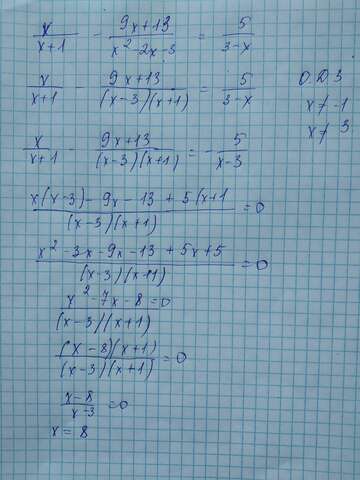 x/(x+1) - (9x+13)/(x² - 2x - 3) = 5/(3-x)
x/(x+1) - (9x+13)/((x-3)(x+1)) = 5/(3-x)
О.Д.З
x ≠ -1
x ≠ 3
x/(x+1) - (9x+13)/((x-3)(x+1)) = - 5/(x-3)
(x(x-3) - 9x - 13 + 5(x+1)/((x-3)(x+1)) = 0
(x² - 3x - 9x - 13 + 5x + 5)/((x-3)(x+1)) = 0
(x² - 7x - 8)/((x-3)(x+1)) = 0
((x-8)(x+1))/((x-3)(x+1)) = 0
(x-8)/(x-3) = 0
x = 8